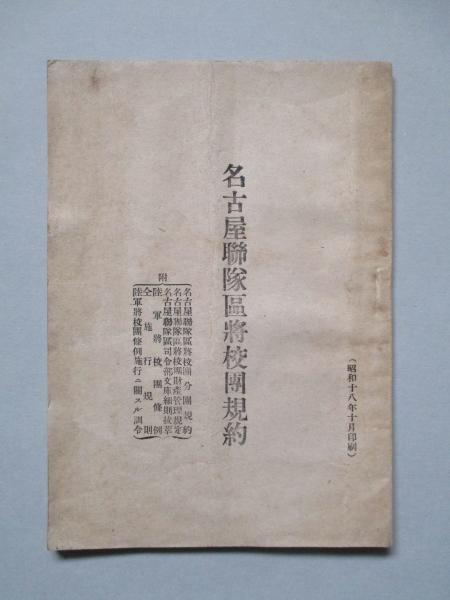 (昭和十八年十月印刷)
名古屋聯隊區將校團規約
附
名古屋聯隊區將校團分團規約
名古屋聯隊區將校團財產管理規定
名古屋聯隊區司令部文庫細則抜萃
陸軍將校團條例
仝施行規則
陸軍將校團條例施行ニ關スル訓令